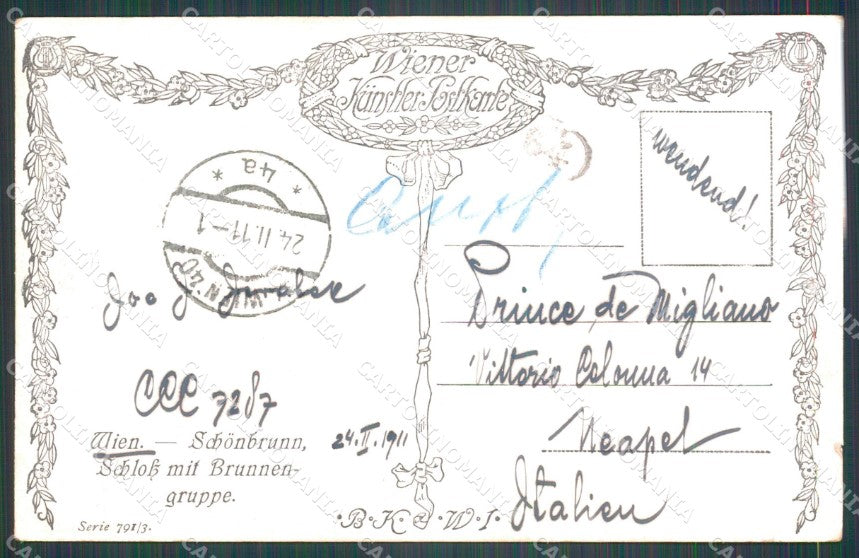 Wiener
Künstler-Postkarte
4a
24.II.11-1
WIEN 40
wendend!
CCC 7287
Wien. — Schönbrunn,
Schloß mit Brunnen-
gruppe.
Serie 791/3.
24.II.1911
B.K. & W.I.
Prince de Migliano
Vittorio Colonna 14
Neapel
Italien
CARTOLINOMANIA